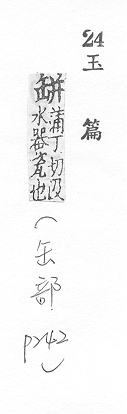 24
玉篇
缾蒲丁切汲
水器瓷也
(缶部
p242)